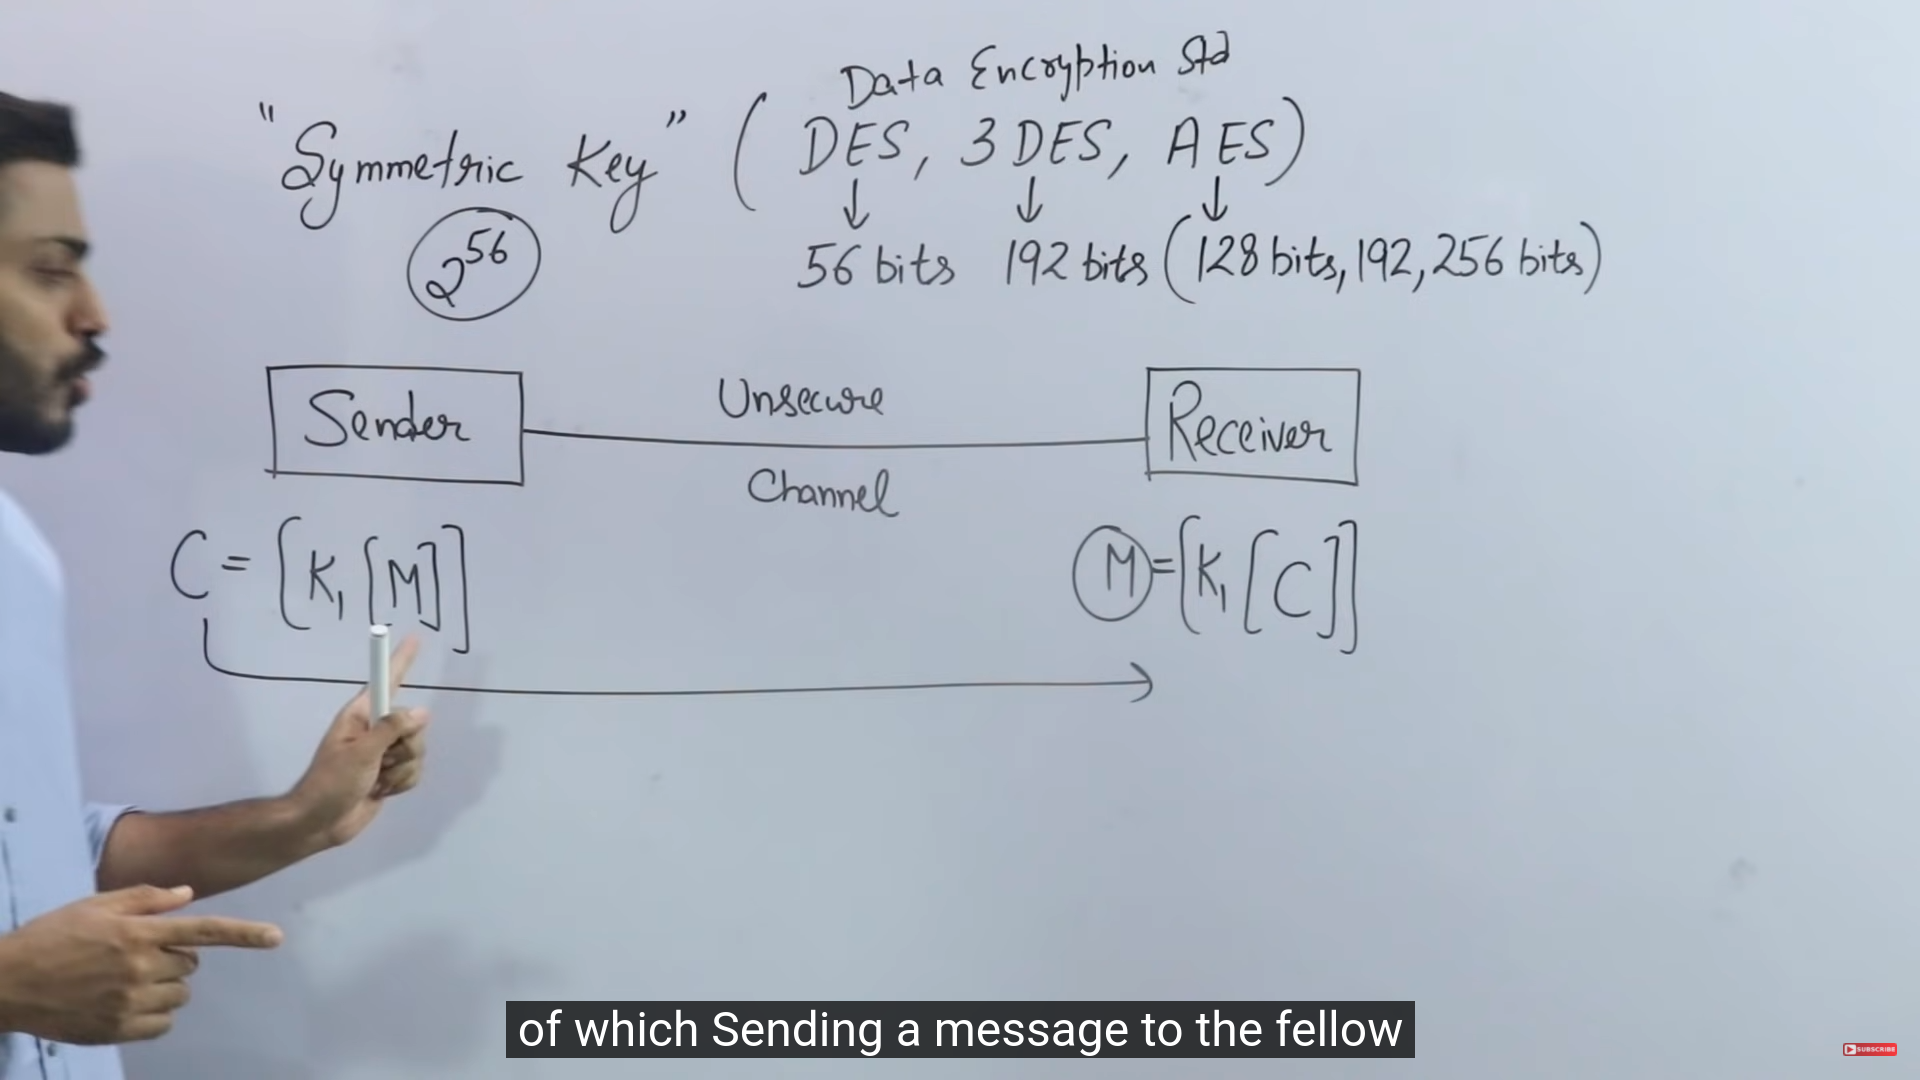 Data Encryption Std
"Symmetric Key" (DES, 3DES, AES)
↓ ↓ ↓
2^56
56 bits 192 bits (128 bits, 192, 256 bits)
Sender Unsecure Receiver
Channel
C = [K1 [M]] M = [K1 [C]]
of which Sending a message to the fellow
SUBSCRIBE